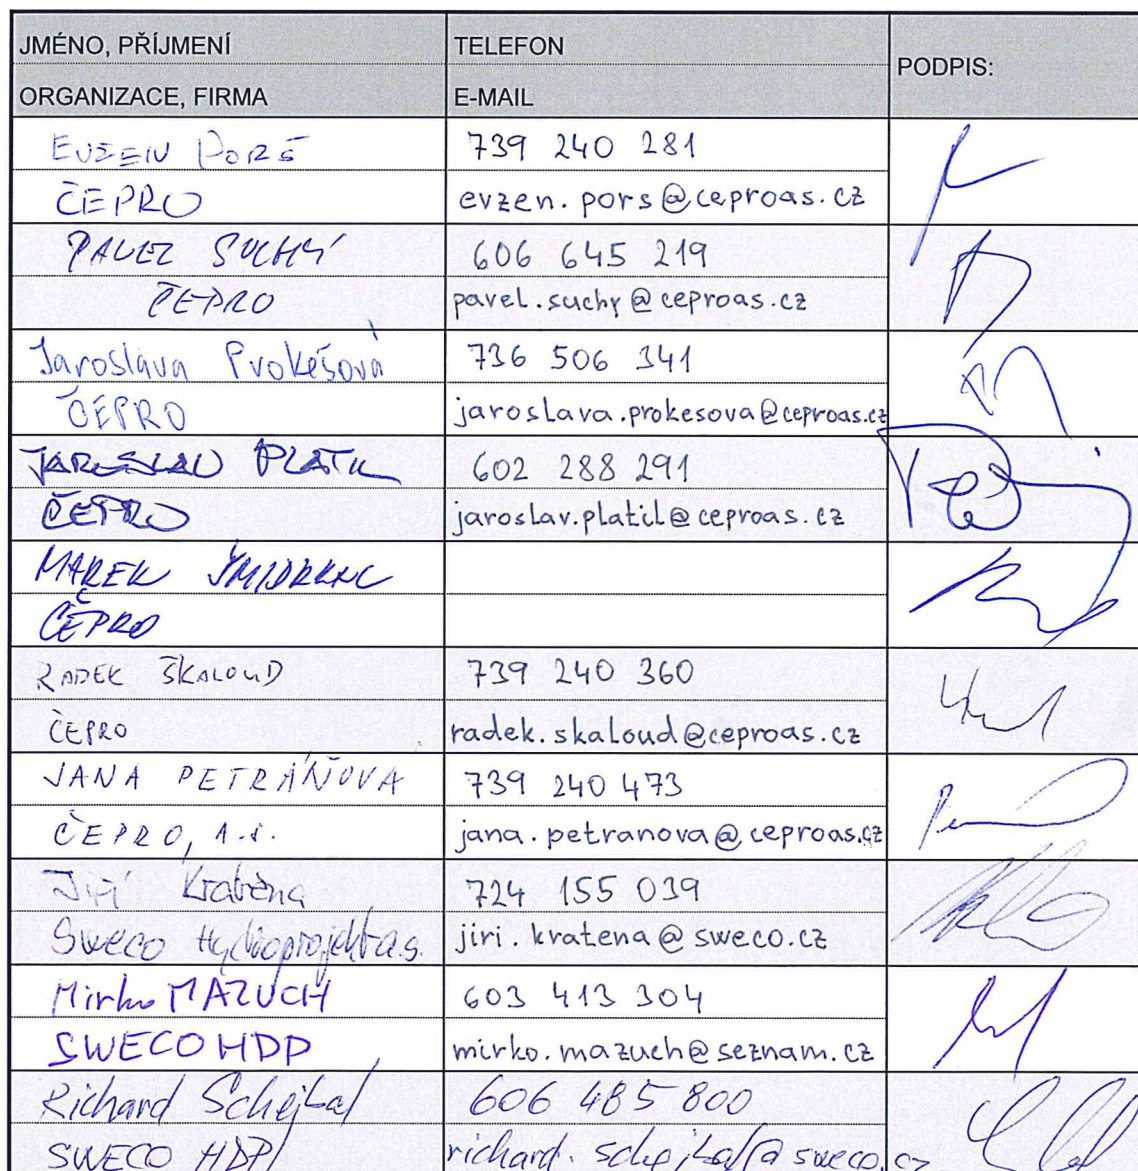 JMÉNO, PŘÍJMENÍ
ORGANIZACE, FIRMA
TELEFON
E-MAIL
PODPIS:
EVŽEN PORŠ
739 240 281
ČEPRO
evzen.pors@ceproas.cz
PAVEL SUCHÝ
606 645 219
ČEPRO
pavel.suchy@ceproas.cz
Jaroslava Prokešová
736 506 341
ČEPRO
jaroslava.prokesova@ceproas.cz
JAROSLAV PLATIL
602 288 291
ČEPRO
jaroslav.platil@ceproas.cz
MAREK
ČEPRO
RADEK ŠKALOUD
739 240 360
ČEPRO
radek.skaloud@ceproas.cz
JANA PETRÁŇOVÁ
739 240 473
ČEPRO, a.s.
jana.petranova@ceproas.cz
Jiří Kratěna
724 155 039
Sweco Hydroprojekt a.s.
jiri.kratena@sweco.cz
Mirko MAZUCH
603 413 304
SWECO HDP
mirko.mazuch@seznam.cz
Richard Schejbal
606 485 800
SWECO HDP
richard.schejbal@sweco.cz